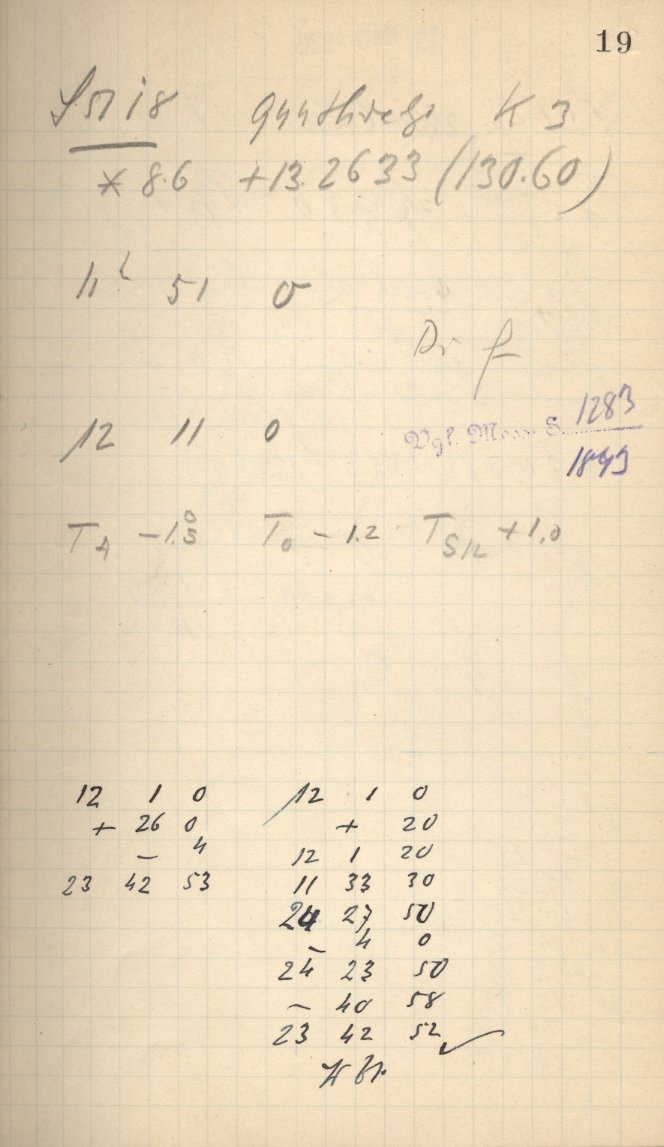 19
K 3
* 8.6 +13.2633 (130.60)
11 51 0
Dr
12 11 0
Vgl. 1283
1849
T_A -1.5 T_0 -1.2 T +1.0
12 1 0
+ 26 0
- 4
23 42 53
12 1 0
+ 20
12 1 20
11 33 30
24 27 50
- 4 0
24 23 50
- 40 58
23 42 52 ✓